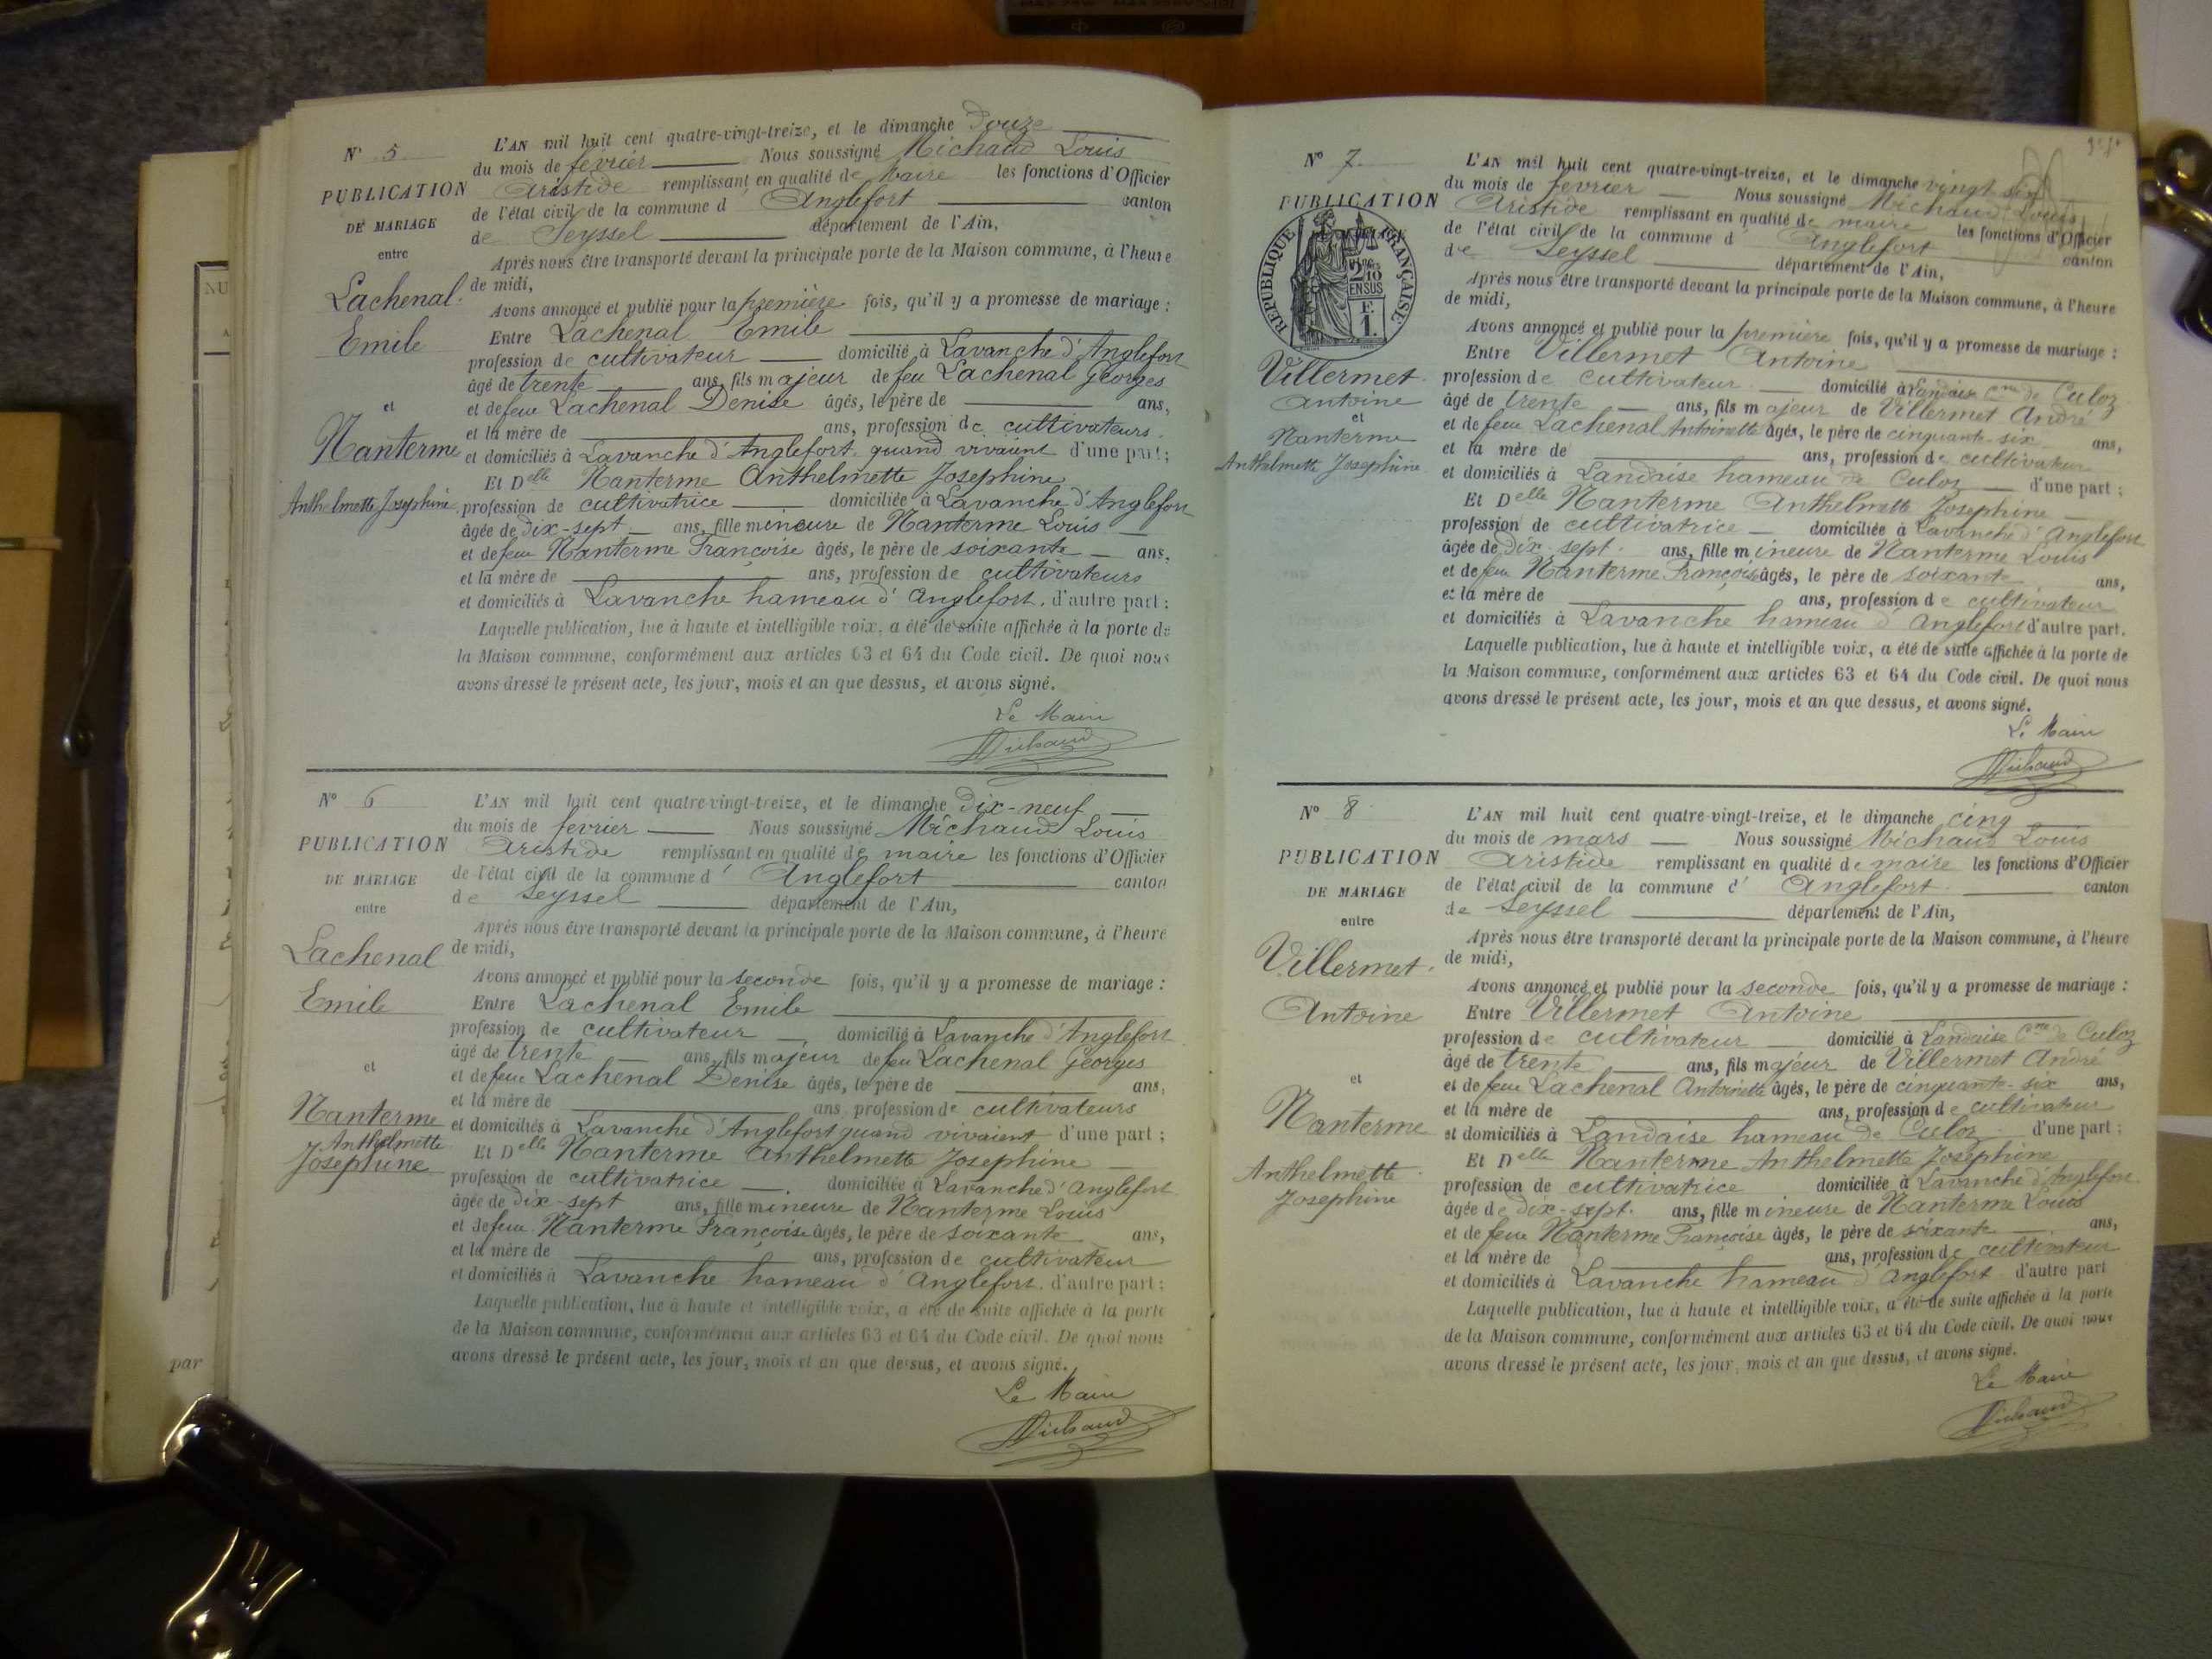 N° 5
PUBLICATION
DE MARIAGE
entre
Lachenal
Emile
et
Nanterme
Anthelmette Josephine
L'AN mil huit cent quatre-vingt-treize, et le dimanche Douze
du mois de fevrier Nous soussigné Michaud Louis
Aristide remplissant en qualité de Maire les fonctions d'Officier
de l'état civil de la commune d' Anglefort canton
de Seyssel département de l'Ain,
Après nous être transporté devant la principale porte de la Maison commune, à l'heure
de midi,
Avons annoncé et publié pour la première fois, qu'il y a promesse de mariage :
Entre Lachenal Emile
profession de cultivateur domicilié à Lavanche d'Anglefort
âgé de trente ans, fils majeur de feu Lachenal Georges
et de feue Lachenal Denise âgés, le père de ans,
et la mère de ans, profession de cultivateurs
et domiciliés à Lavanche d'Anglefort quand vivaient d'une part;
Et Delle Nanterme Anthelmette Josephine
profession de cultivatrice domiciliée à Lavanche d'Anglefort
âgée de dix-sept ans, fille mineure de Nanterme Louis
et de feue Nanterme Françoise âgés, le père de soixante ans,
et la mère de ans, profession de cultivateurs
et domiciliés à Lavanche hameau d'Anglefort. d'autre part;
Laquelle publication, lue à haute et intelligible voix, a été de suite affichée à la porte de
la Maison commune, conformément aux articles 63 et 64 du Code civil. De quoi nous
avons dressé le présent acte, les jour, mois et an que dessus, et avons signé.
Le Maire
Michaud
N° 6
PUBLICATION
DE MARIAGE
entre
Lachenal
Emile
et
Nanterme
Anthelmette
Josephine
L'AN mil huit cent quatre-vingt-treize, et le dimanche Dix-neuf
du mois de fevrier Nous soussigné Michaud Louis
Aristide remplissant en qualité de maire les fonctions d'Officier
de l'état civil de la commune d' Anglefort canton
de Seyssel département de l'Ain,
Après nous être transporté devant la principale porte de la Maison commune, à l'heure
de midi,
Avons annoncé et publié pour la seconde fois, qu'il y a promesse de mariage :
Entre Lachenal Emile
profession de cultivateur domicilié à Lavanche d'Anglefort
âgé de trente ans, fils majeur de feu Lachenal Georges
et de feue Lachenal Denise âgés, le père de ans,
et la mère de ans, profession de cultivateurs
et domiciliés à Lavanche d'Anglefort quand vivaient d'une part;
Et Delle Nanterme Anthelmette Josephine
profession de cultivatrice domiciliée à Lavanche d'Anglefort
âgée de dix-sept ans, fille mineure de Nanterme Louis
et de feue Nanterme Françoise âgés, le père de soixante ans,
et la mère de ans, profession de cultivateur
et domiciliés à Lavanche hameau d'Anglefort. d'autre part;
Laquelle publication, lue à haute et intelligible voix, a été de suite affichée à la porte
de la Maison commune, conformément aux articles 63 et 64 du Code civil. De quoi nous
avons dressé le présent acte, les jour, mois et an que dessus, et avons signé.
Le Maire
Michaud
par
N° 7
PUBLICATION
RÉPUBLIQUE FRANÇAISE
Villermet
Antoine
et
Nanterme
Anthelmette Josephine
L'AN mil huit cent quatre-vingt-treize, et le dimanche vingt six
du mois de fevrier Nous soussigné Michaud Louis
Aristide remplissant en qualité de maire les fonctions d'Officier
de l'état civil de la commune d' Anglefort canton
de Seyssel département de l'Ain,
Après nous être transporté devant la principale porte de la Maison commune, à l'heure
de midi,
Avons annoncé et publié pour la première fois, qu'il y a promesse de mariage :
Entre Villermet Antoine
profession de cultivateur domicilié à Landaise Cne de Culoz
âgé de trente ans, fils majeur de Villermet André
et de feue Lachenal Antoinette âgés, le père de cinquante-six ans,
et la mère de ans, profession de cultivateur
et domiciliés à Landaise hameau de Culoz d'une part;
Et Delle Nanterme Anthelmette Josephine
profession de cultivatrice domiciliée à Lavanche d'Anglefort
âgée de dix-sept ans, fille mineure de Nanterme Louis
et de feue Nanterme Françoise âgés, le père de soixante ans,
et la mère de ans, profession de cultivateur
et domiciliés à Lavanche hameau d'Anglefort d'autre part.
Laquelle publication, lue à haute et intelligible voix, a été de suite affichée à la porte de
la Maison commune, conformément aux articles 63 et 64 du Code civil. De quoi nous
avons dressé le présent acte, les jour, mois et an que dessus, et avons signé.
Le Maire
Michaud
N° 8
PUBLICATION
DE MARIAGE
entre
Villermet
Antoine
et
Nanterme
Anthelmette
Josephine
L'AN mil huit cent quatre-vingt-treize, et le dimanche cinq
du mois de mars Nous soussigné Michaud Louis
Aristide remplissant en qualité de maire les fonctions d'Officier
de l'état civil de la commune d' Anglefort canton
de Seyssel département de l'Ain,
Après nous être transporté devant la principale porte de la Maison commune, à l'heure
de midi,
Avons annoncé et publié pour la seconde fois, qu'il y a promesse de mariage :
Entre Villermet Antoine
profession de cultivateur domicilié à Landaise Cne de Culoz
âgé de trente ans, fils majeur de Villermet André
et de feue Lachenal Antoinette âgés, le père de cinquante-six ans,
et la mère de ans, profession de cultivateur
et domiciliés à Landaise hameau de Culoz d'une part;
Et Delle Nanterme Anthelmette Josephine
profession de cultivatrice domiciliée à Lavanche d'Anglefort
âgée de dix-sept ans, fille mineure de Nanterme Louis
et de feue Nanterme Françoise âgés, le père de soixante ans,
et la mère de ans, profession de cultivateur
et domiciliés à Lavanche hameau d'Anglefort d'autre part
Laquelle publication, lue à haute et intelligible voix, a été de suite affichée à la porte
de la Maison commune, conformément aux articles 63 et 64 du Code civil. De quoi nous
avons dressé le présent acte, les jour, mois et an que dessus, et avons signé.
Le Maire
Michaud